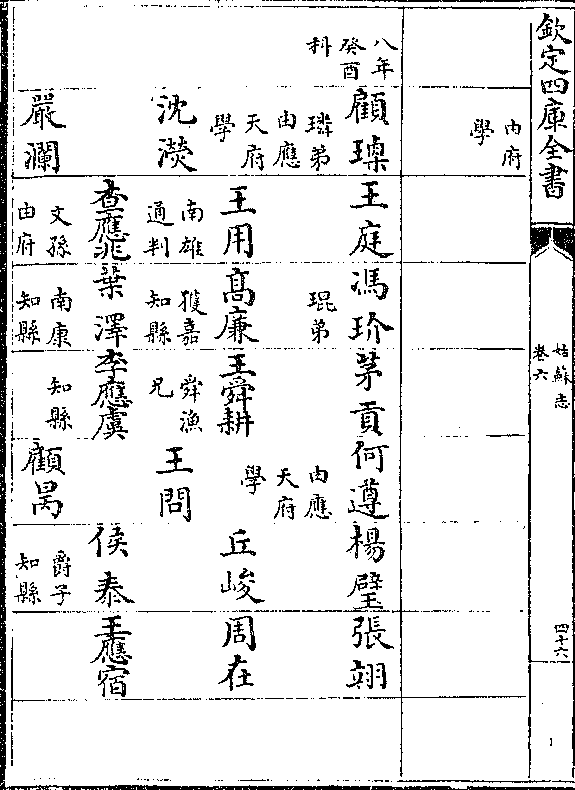 欽定四庫全書
姑蘇志
卷六
四十六
由府
學
八年
癸酉
科
顧璖 王庭 馮玠 茅貢 何遵 楊璧 張翊
璘弟
由應
天府
學
琨弟
由應
天府
學
王用 高廉 王舜耕 丘峻 周在
沈濙
南雄
通判
獲嘉
知縣
舜漁
兄
王問
查應兆 葉澤 李應虞 侯泰 王應宿
嚴瀾
文孫
由府
南康
知縣
知縣
顧昺
爵子
知縣